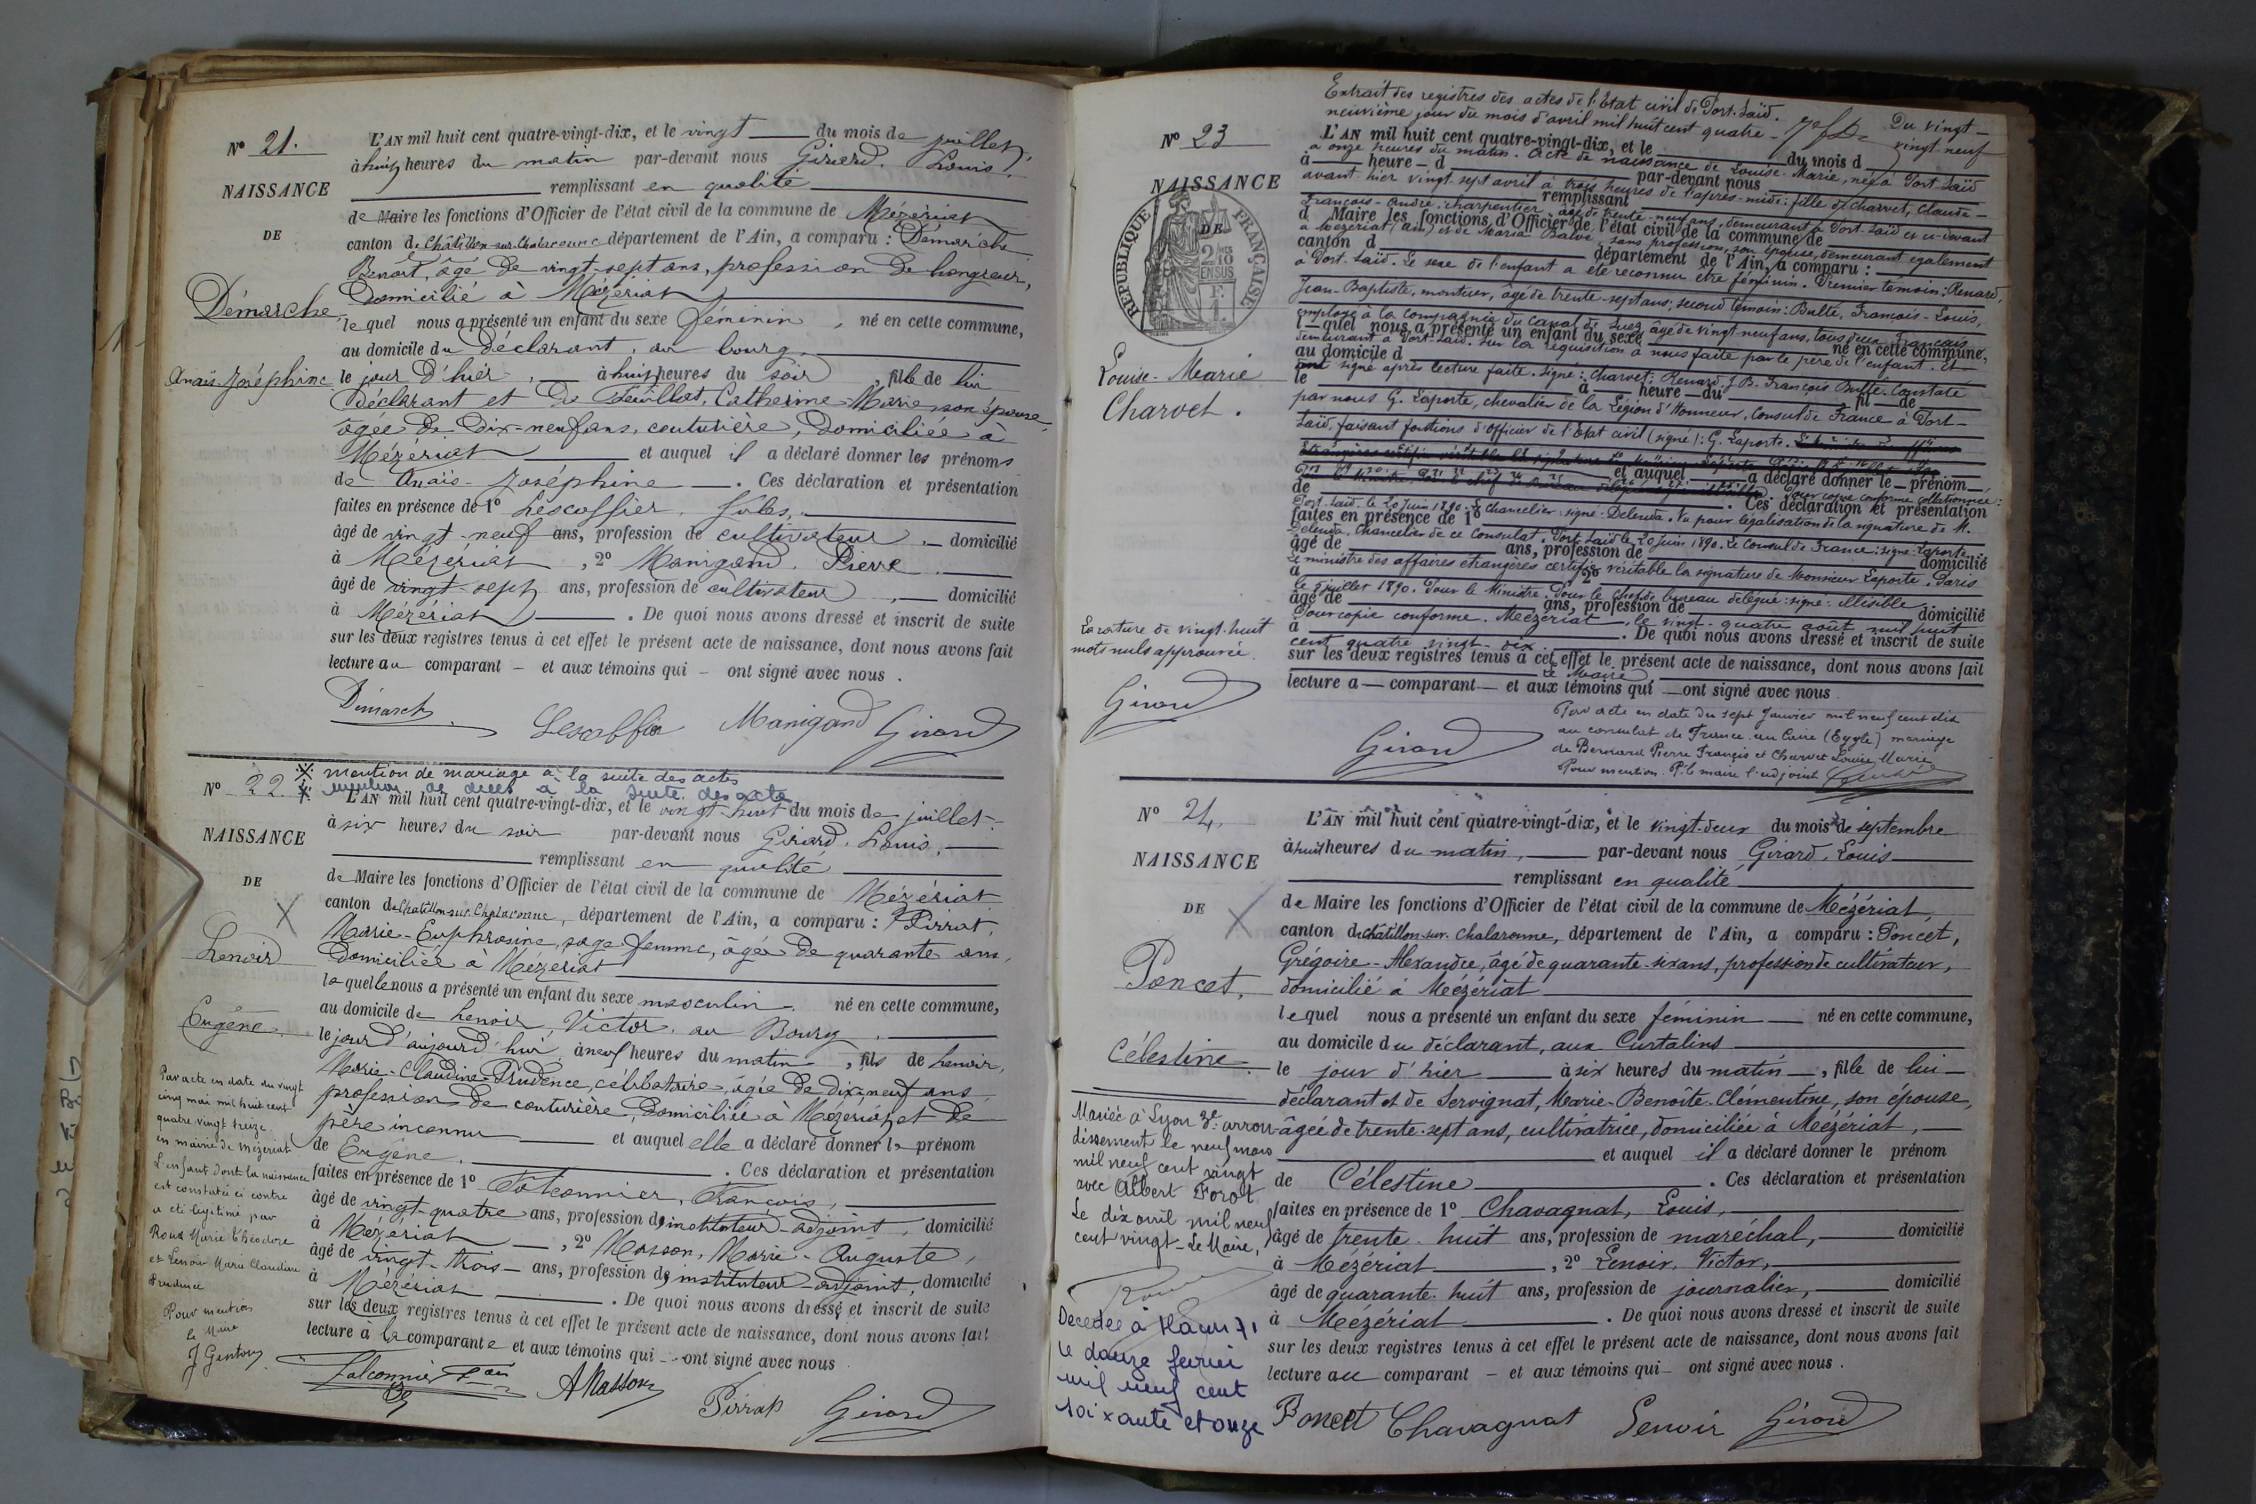 N° 21.
NAISSANCE
DE
Démarche
Anaïs-Joséphine
L'AN mil huit cent quatre-vingt-dix, et le vingt du mois de juillet,
à huit heures du matin par-devant nous Girard, Louis,
remplissant en qualité
de Maire les fonctions d'Officier de l'état civil de la commune de Mézériat
canton de Châtillon-sur-Chalaronne département de l'Ain, a comparu : Démarche
Benoît, âgé de vingt-sept ans, profession de hongreur,
domicilié à Mézériat
lequel nous a présenté un enfant du sexe féminin, né en cette commune,
au domicile du déclarant, au bourg,
le jour d'hier, à huit heures du soir, fille de lui
déclarant et de Feuillet, Catherine-Marie, son épouse,
âgée de dix-neuf ans, couturière, domiciliée à
Mézériat et auquel il a déclaré donner les prénoms
de Anaïs-Joséphine. Ces déclaration et présentation
faites en présence de 1° Lescoffier, Jules,
âgé de vingt-neuf ans, profession de cultivateur, domicilié
à Mézériat, 2° Manigand, Pierre,
âgé de vingt-sept ans, profession de cultivateur, domicilié
à Mézériat. De quoi nous avons dressé et inscrit de suite
sur les deux registres tenus à cet effet le présent acte de naissance, dont nous avons fait
lecture au comparant – et aux témoins qui – ont signé avec nous.
Démarche Lescoffier Manigand Girard
mention de mariage à la suite des actes
mention de décès à la suite des actes
N° 22.
NAISSANCE
DE
Lenoir
Eugène
Par acte en date du vingt
cinq mai mil huit cent
quatre vingt treize
en mairie de Mézériat
L'enfant dont la naissance
est constatée ci contre
a été légitimé par
Roux Marie Théodore
et Lenoir Marie Claudine
Prudence
Pour mention
Le Maire
J Genton
L'AN mil huit cent quatre-vingt-dix, et le vingt-huit du mois de juillet
à six heures du soir par-devant nous Girard, Louis,
remplissant en qualité
de Maire les fonctions d'Officier de l'état civil de la commune de Mézériat
canton de Châtillon-sur-Chalaronne, département de l'Ain, a comparu : Pirrat,
Marie-Euphrosine, sage femme, âgée de quarante ans,
domiciliée à Mézériat
laquelle nous a présenté un enfant du sexe masculin né en cette commune,
au domicile de Lenoir, Victor, au Bourg,
le jour d'aujourd'hui, à neuf heures du matin, fils de Lenoir,
Marie-Claudine-Prudence, célibataire, âgée de dix-neuf ans,
profession de couturière, domiciliée à Mézériat et de
père inconnu et auquel elle a déclaré donner le prénom
de Eugène. Ces déclaration et présentation
faites en présence de 1° Falconnier, François,
âgé de vingt-quatre ans, profession d'instituteur-adjoint, domicilié
à Mézériat, 2° Masson, Marie-Auguste,
âgé de vingt-trois ans, profession d'instituteur-adjoint, domicilié
à Mézériat. De quoi nous avons dressé et inscrit de suite
sur les deux registres tenus à cet effet le présent acte de naissance, dont nous avons fait
lecture à la comparante et aux témoins qui – ont signé avec nous.
Falconnier Fçois A Masson Pirrat Girard
N° 23
NAISSANCE
DE
RÉPUBLIQUE FRANÇAISE
Louise-Marie
Charvet.
La rature de vingt-huit
mots nuls approuvée.
Girard
Extrait des registres des actes de l'État civil de Port-Saïd. Du vingt-
neuvième jour du mois d'avril mil huit cent quatre-vingt-neuf
L'AN mil huit cent quatre-vingt-dix, et le du mois d
à onze heures du matin. Acte de naissance de Louise-Marie, née à Port-Saïd
à heure d par-devant nous
avant-hier vingt-sept avril à trois heures de l'après-midi: fille de Charvet, Claude-
remplissant
François-André, charpentier, âgé de trente-neuf ans, demeurant à Port-Saïd et ci-devant
d Maire les fonctions d'Officier de l'état civil de la commune de
à Mézériat (Ain) et de Maria Balve, sans profession, son épouse, demeurant également
canton d département de l'Ain, a comparu :
à Port-Saïd. Le sexe de l'enfant a été reconnu être féminin. Premier témoin: Renard,
Jean-Baptiste, monteur, âgé de trente-sept ans; second témoin: Bulté, François-Louis,
employé à la compagnie du canal de Suez âgé de vingt neuf ans, tous deux français
l quel nous a présenté un enfant du sexe né en cette commune,
demeurant à Port-Saïd. Sur la réquisition à nous faite par le père de l'enfant. Et
au domicile d
ont signé après lecture faite. Signé: Charvet; Renard J. B. François Bulté. Constaté
le à heure du fil de
par nous G. Laporte, chevalier de la Légion d'Honneur, Consul de France à Port-
Saïd, faisant fonctions d'officier de l'État civil (signé): G. Laporte.
et auquel a déclaré donner le prénom
Pour copie conforme collationnée:
de . Ces déclaration et présentation
Port-Saïd, le 20 Juin 1890. Le Chancelier: signé: Delenda. Vu pour légalisation de la signature de M.
faites en présence de 1°
Delenda, Chancelier de ce Consulat. Port Saïd le 20 Juin 1890. Le Consul de France: signé: Laporte.
âgé de ans, profession de domicilié
Le ministre des affaires étrangères certifie véritable la signature de Monsieur Laporte. Paris
à 2°
le 5 juillet 1890. Pour le Ministre. Pour le Chef de bureau délégué: signé: illisible
âgé de ans, profession de domicilié
Pour copie conforme. Mézériat, le vingt-quatre août mil huit
à . De quoi nous avons dressé et inscrit de suite
cent quatre vingt-dix.
sur les deux registres tenus à cet effet le présent acte de naissance, dont nous avons fait
Le Maire
lecture a comparant et aux témoins qui ont signé avec nous
Girard
Par acte en date du sept Janvier mil neuf cent dix
au consulat de France au Caire (Egypte) mariage
de Bernard Pierre François et Charvet Louise Marie
Pour mention. P. le maire l'adjoint
N° 24,
NAISSANCE
DE
Poncet,
Célestine.
Mariée à Lyon 3e arron-
dissement le neuf mars
mil neuf cent vingt
avec Albert Forot
Le dix avril mil neuf
cent vingt - Le Maire,
Décédée à
le douze février
mil neuf cent
soixante et onze
L'AN mil huit cent quatre-vingt-dix, et le vingt-deux du mois de septembre
à huit heures du matin, par-devant nous Girard, Louis
remplissant en qualité
de Maire les fonctions d'Officier de l'état civil de la commune de Mézériat,
canton de Châtillon-sur-Chalaronne, département de l'Ain, a comparu : Poncet,
Grégoire-Alexandre, âgé de quarante-six ans, profession de cultivateur,
domicilié à Mézériat
lequel nous a présenté un enfant du sexe féminin né en cette commune,
au domicile du déclarant, aux Curtalins
le jour d'hier à six heures du matin, fille de lui
déclarant et de Servignat, Marie-Benoîte-Clémentine, son épouse,
âgée de trente-sept ans, cultivatrice, domiciliée à Mézériat,
et auquel il a déclaré donner le prénom
de Célestine. Ces déclaration et présentation
faites en présence de 1° Chavagnat, Louis,
âgé de trente-huit ans, profession de maréchal, domicilié
à Mézériat, 2° Lenoir, Victor,
âgé de quarante-huit ans, profession de journalier, domicilié
à Mézériat. De quoi nous avons dressé et inscrit de suite
sur les deux registres tenus à cet effet le présent acte de naissance, dont nous avons fait
lecture au comparant – et aux témoins qui – ont signé avec nous.
Poncet Chavagnat Lenoir Girard